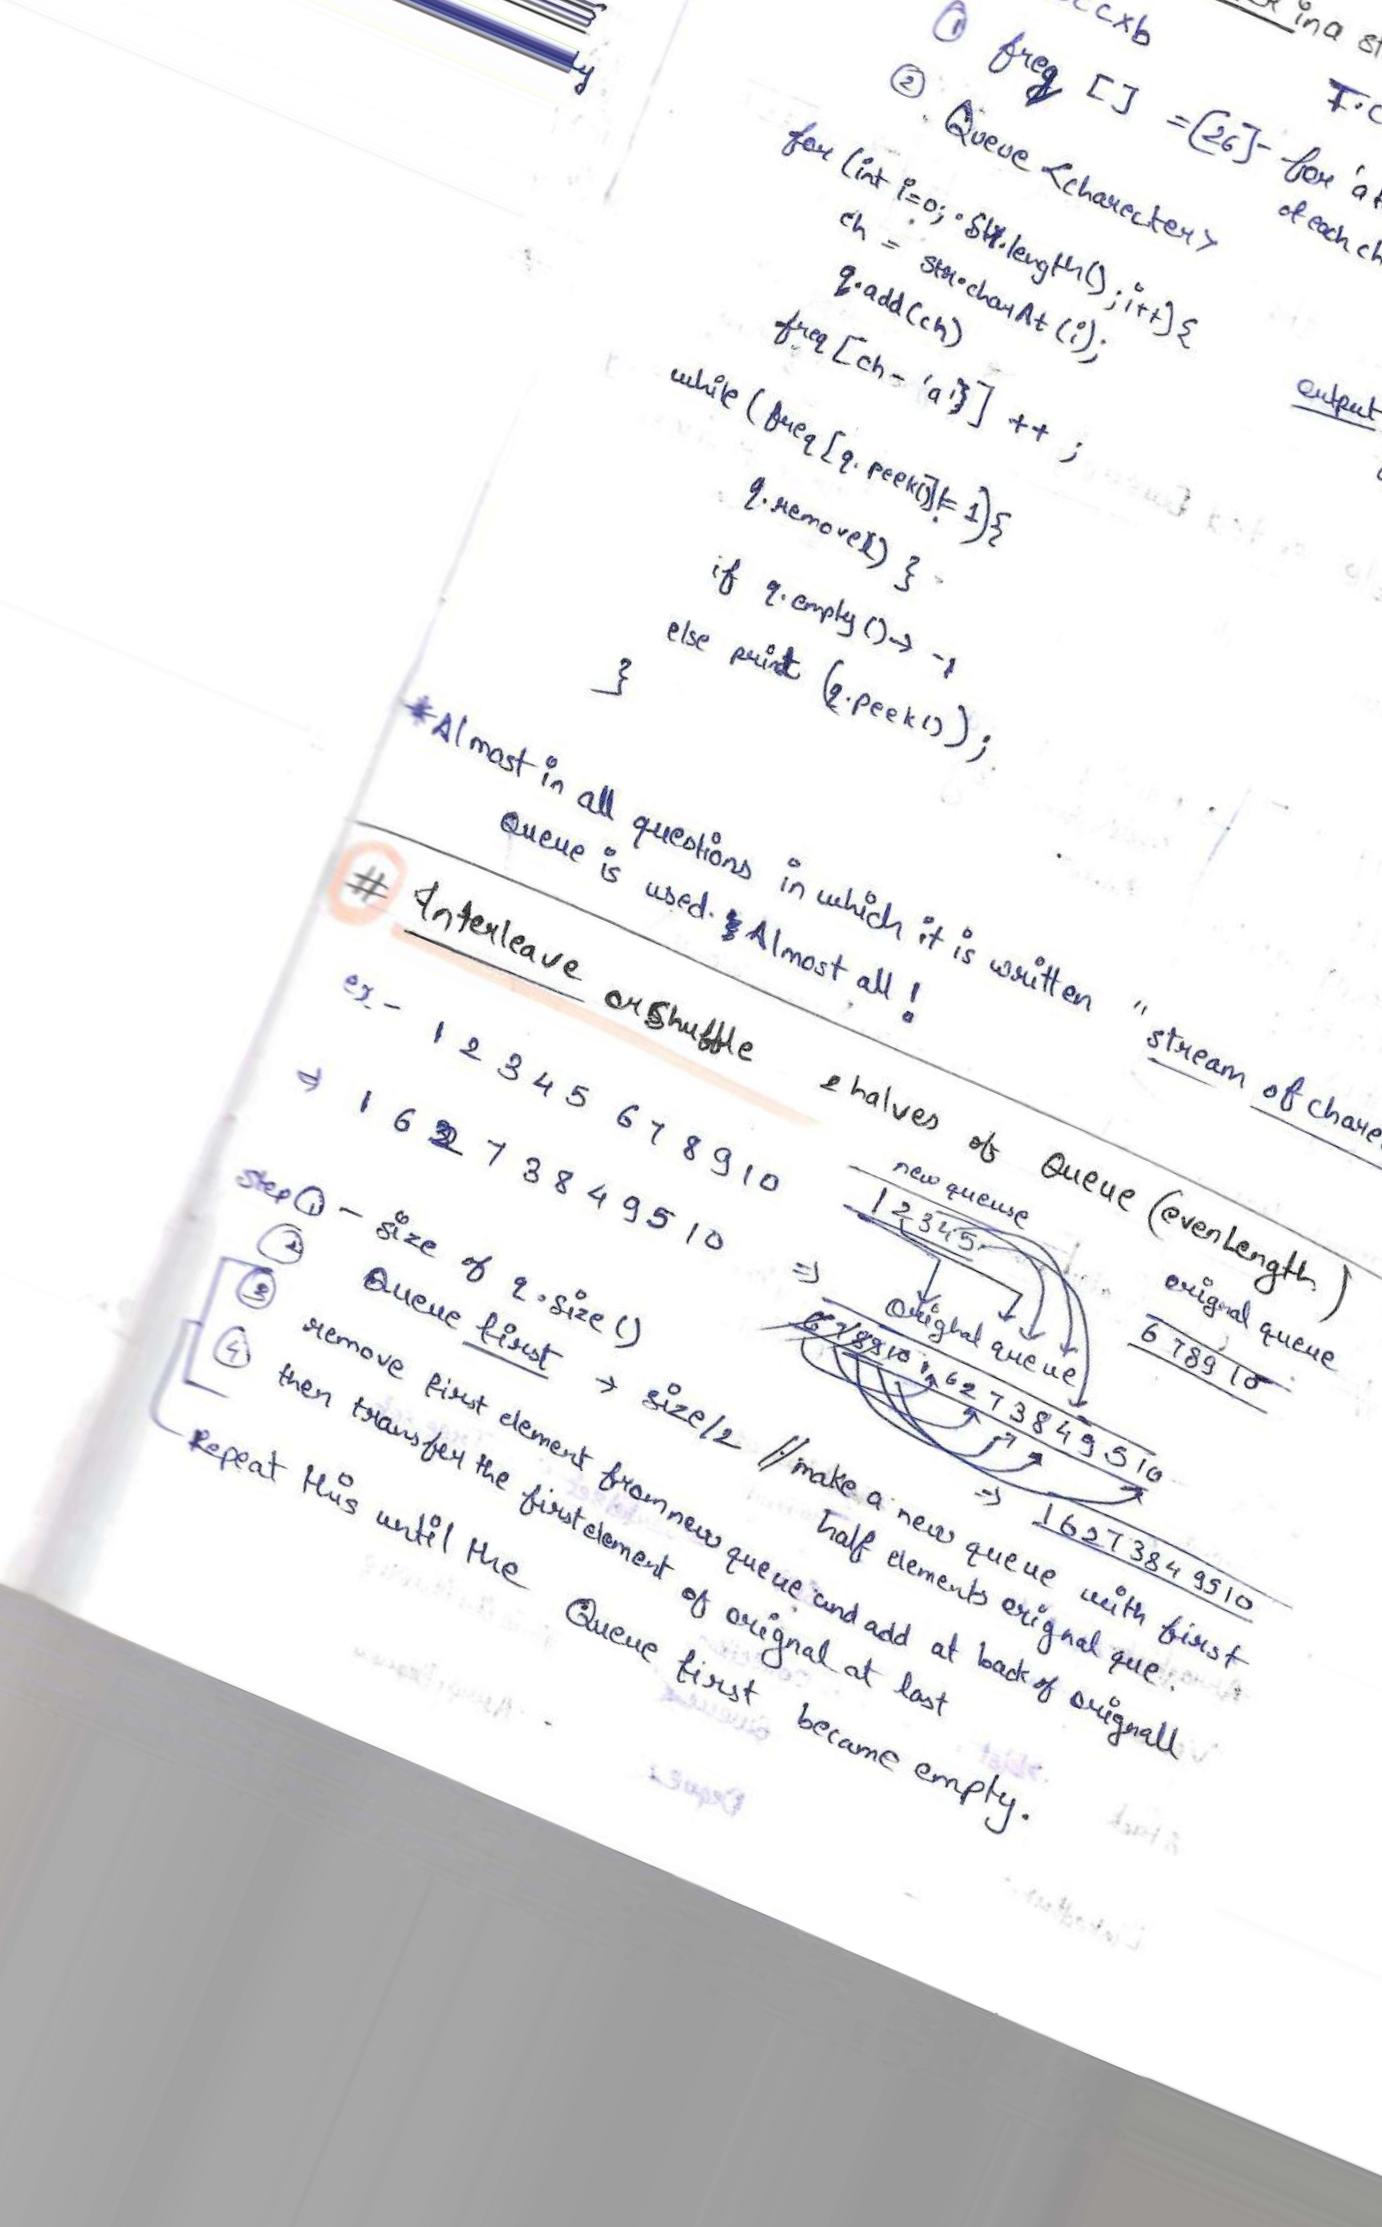 ly
ccxb
in a st
① freq [] = [26] - for 'a
of each ch
② Queue <charecter>
for (int i=0; str.length(); i++) {
ch = str.charAt(i);
q.add(ch)
freq [ch - 'a'] ++ ;
while (freq [q.peek()] != 1) {
q.remove() }
if q.empty () → -1
else print (q.peek());
}
output
*Almost in all questions in which it is written " stream of chare
Queue is used. Almost all !
# Interleave or Shuffle 2 halves of Queue (even Length)
ex - 1 2 3 4 5 6 7 8 9 10
⇒ 1 6 2 7 3 8 4 9 5 10
new queuse
1 2 3 4 5
orignal queue
6 7 8 9 10
⇒ Orighal queue
6 7 8 9 10 1 6 2 7 3 8 4 9 5 10
⇒ 1 6 2 7 3 8 4 9 5 10
Step ① - size of q.size()
② Queue first → size/2 // make a new queue with first
half elements orignal que.
③ remove first element from new queue and add at back of orignall
④ then transfer the first element of orignal at last
Repeat this until the Queue first became empty.